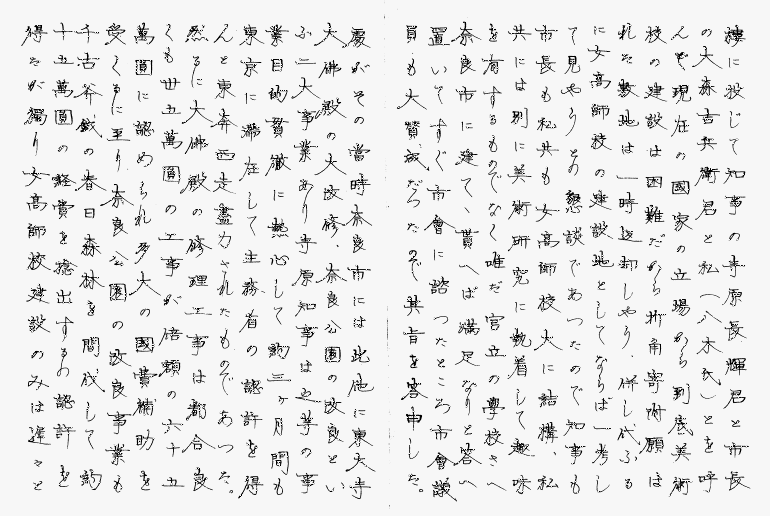 機に投じて知事の寺原長輝君と市長
の大森吉兵衛君と私（八木氏）とを呼
んで、現在の國家の立場から到底美術
校の建設は困難だから折角寄附願は
れた敷地は一時返却しやう、併し代ふる
に女高師校の建設地としてならば一考し
て見やうとの懇談であつたので知事も
市長も私共も女高師校大に結構、私
共には別に美術研究に執着して趣味
を有するものでなく唯だ官立の學校さへ
奈良市に建て丶貰へば満足なりと答へ
置いてすぐ市會に諮つたところ市會議
員も大賛成だつたので其旨を答申した。
處がその當時奈良市には此他に東大寺
大佛殿の大改修、奈良公園の改良とい
ふ二大事業あり寺原知事は之等の事
業目的貫徹に熱心して約三ヶ月間も
東京に滞在して主務省の認許を得
んと東奔西走盡力されたものであつた。
然るに大佛殿の修理工事は都合良
くも卅五萬圓の工事が倍額の六十五
萬圓に認められ多大の國費補助を
受くるに至り奈良公園の改良事業も
千古斧鉞の春日森林を間伐して約
十五萬圓の経費を捻出するの認許を
得たが獨り女高師校建設のみは遅々と